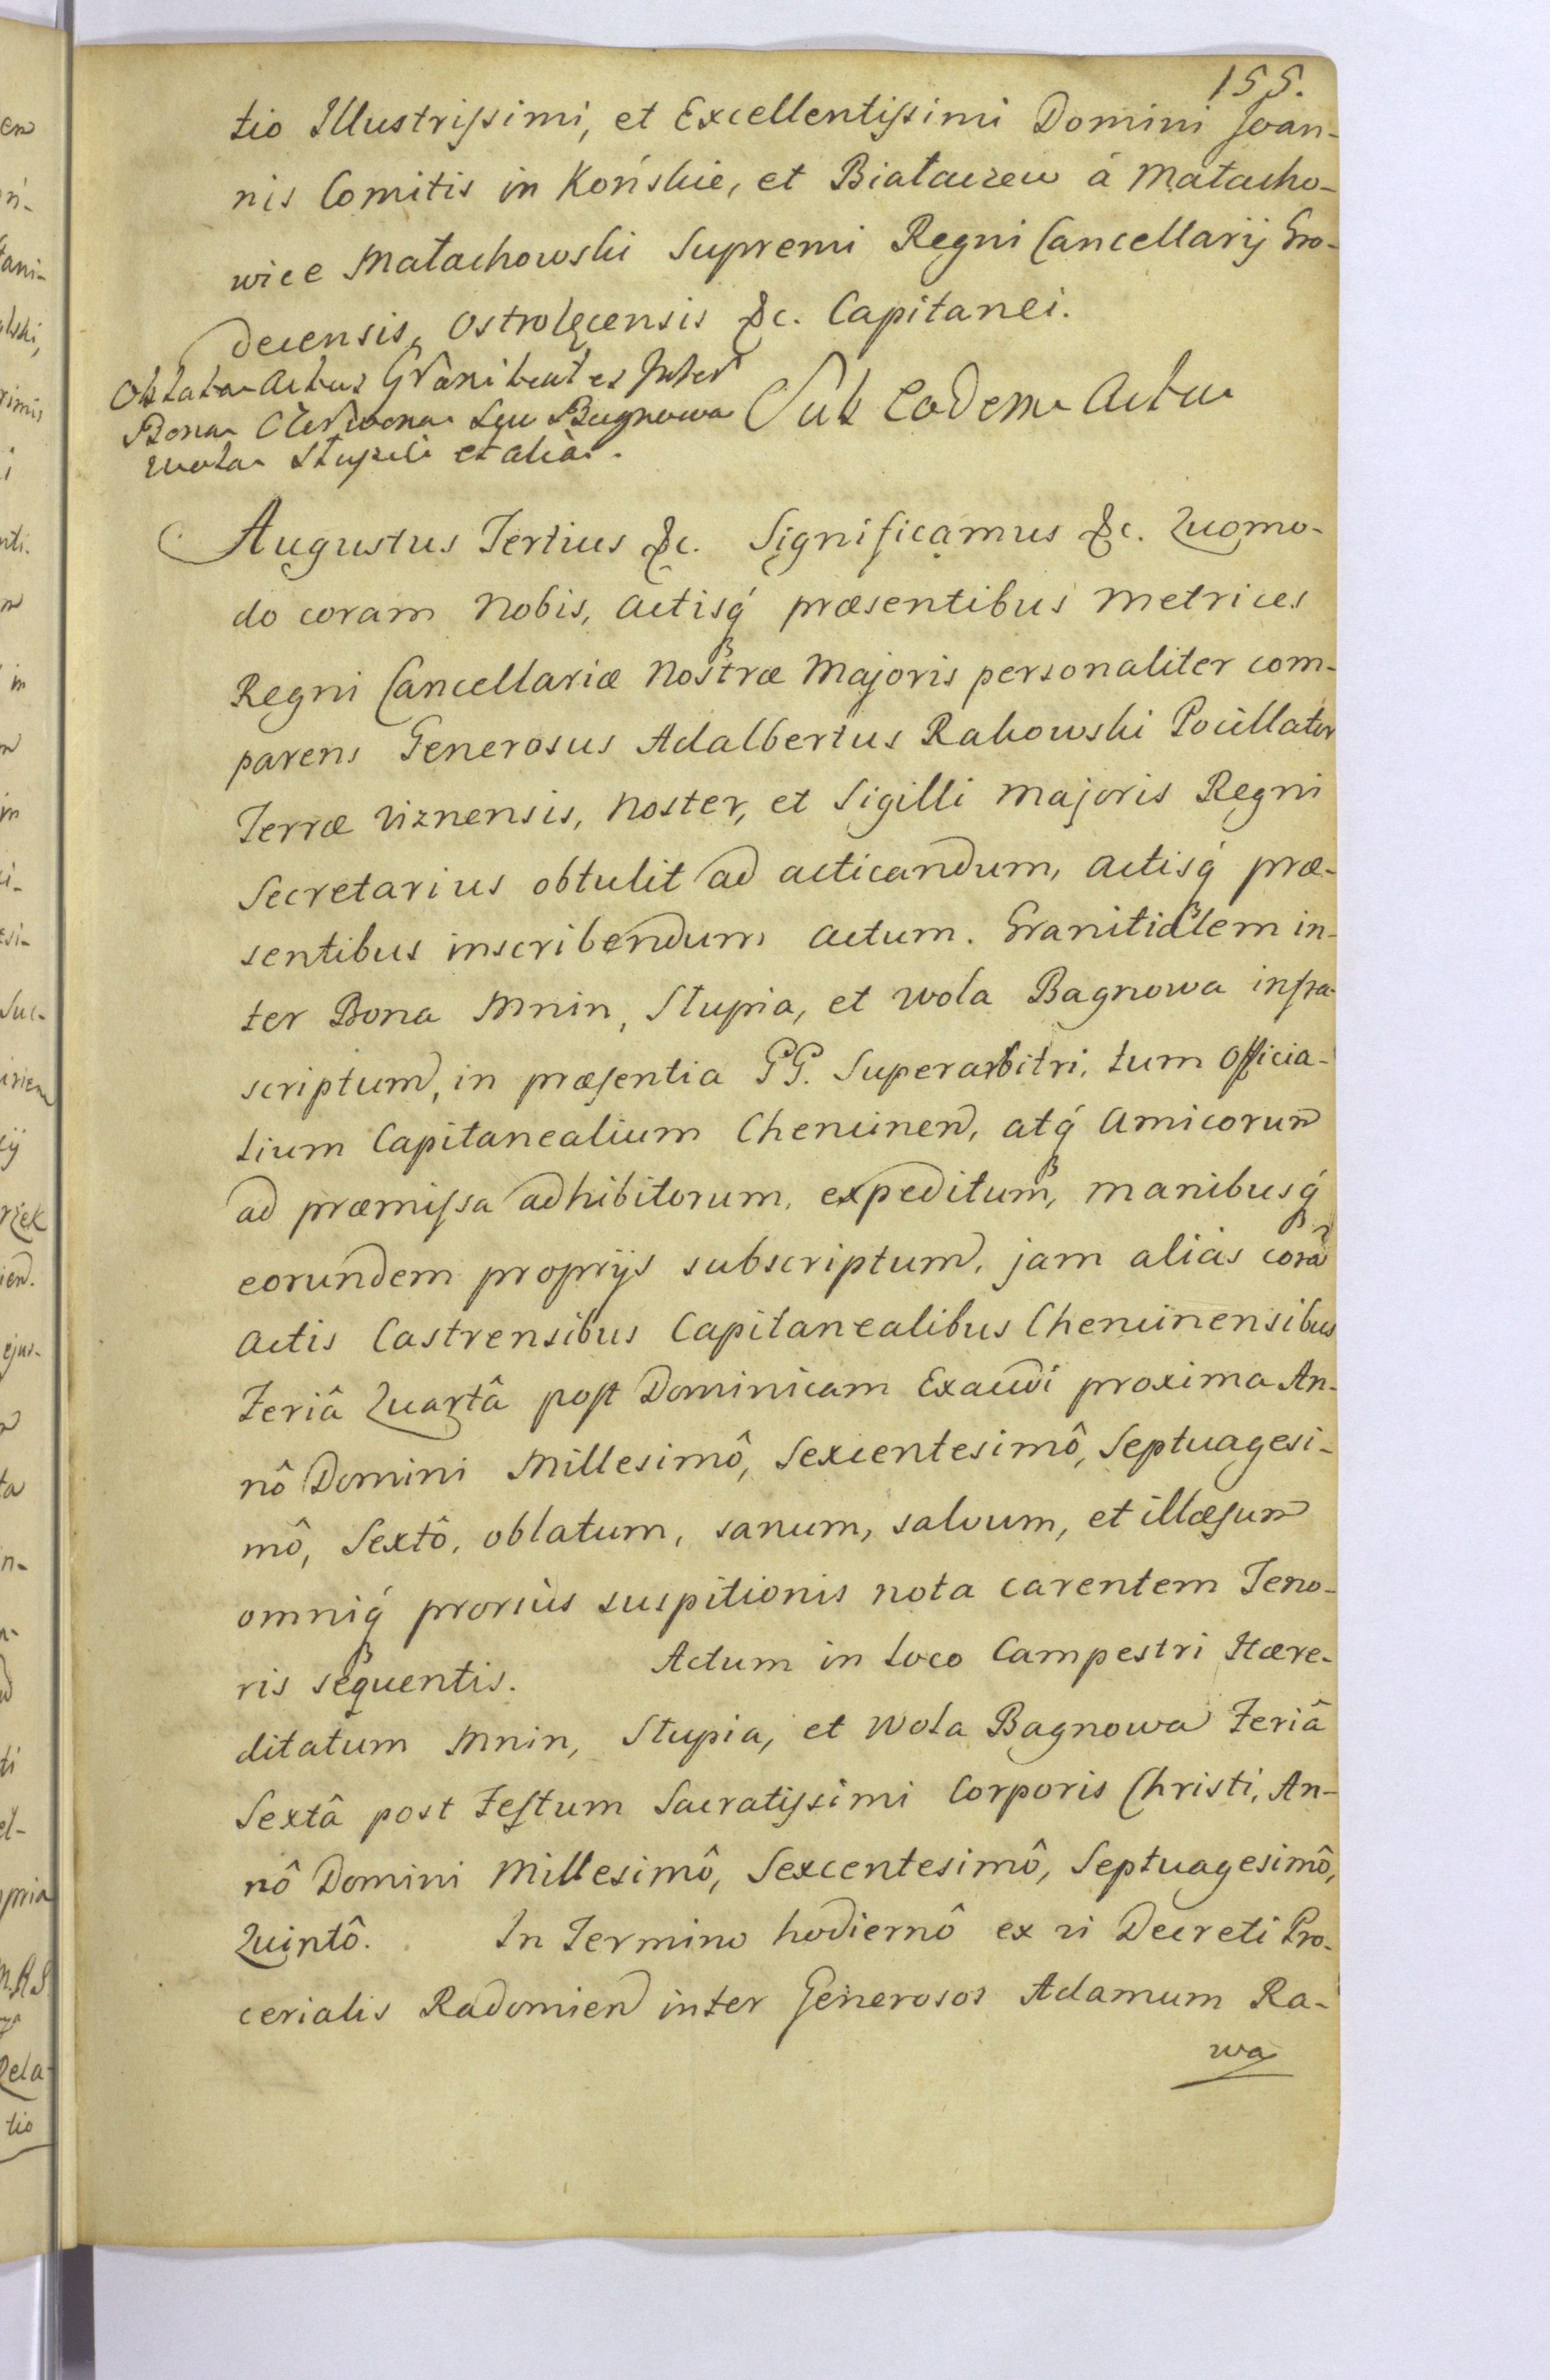 155.
tio Illustrissimi, et Excellentissimi Domini Joan-
nis Comitis in Końskie, et Białaczew á Małacho-
wice Małachowski Supremi Regni Cancellarij Gro-
decensis, Ostrolęcensis &c. Capitanei.
Oblata Actus Granitialis Inter
Bona Czerwona Seu Bagnowa
wola Słupia et alia.
Sub Eodem Actu
Augustus Tertius &c. Significamus &c. Quomo-
do coram Nobis, Actisq́ præsentibus Metrices
Regni Cancellariæ Nostræ Majoris personaliter com-
parens Generosus Adalbertus Rakowski Pocillator
Terræ Viznensis, Noster, et Sigilli Majoris Regni
Secretarius obtulit ad acticandum, Actisq́ præ-
sentibus inscribendum Actum. Granitialem in-
ter Bona Mnin, Słupia, et Wola Bagnowa infra-
scriptum, in præsentia GG. Superarbitri, tum Officia-
lium Capitanealium Chencinen, atq́ Amicorum
ad præmissa adhibitorum, expeditum, manibusq́
eorundem proprijs subscriptum, jam aliàs corã
Actis Castrensibus Capitanealibus Chencinensibus
Feriâ Quartâ post Dominicam Exaudi proxima An-
nô Domini Millesimô, Sexcentesimô, Septuagesi-
mô, Sextô, oblatum, sanum, salvum, et illæsum
omniq́ prorsùs suspitionis nota carentem Teno-
ris sequentis. Actum in Loco Campestri Hære-
ditatum Mnin, Słupia, et Wola Bagnowa Feriâ
Sextâ post Festum Sacratissimi Corporis Christi, An-
nô Domini Millesimô, Sexcentesimô, Septuagesimô,
Quintô. In Termino hodiernô ex vi Decreti Pro-
cerialis Radomien inter Generosos Adamum Ra-
wa